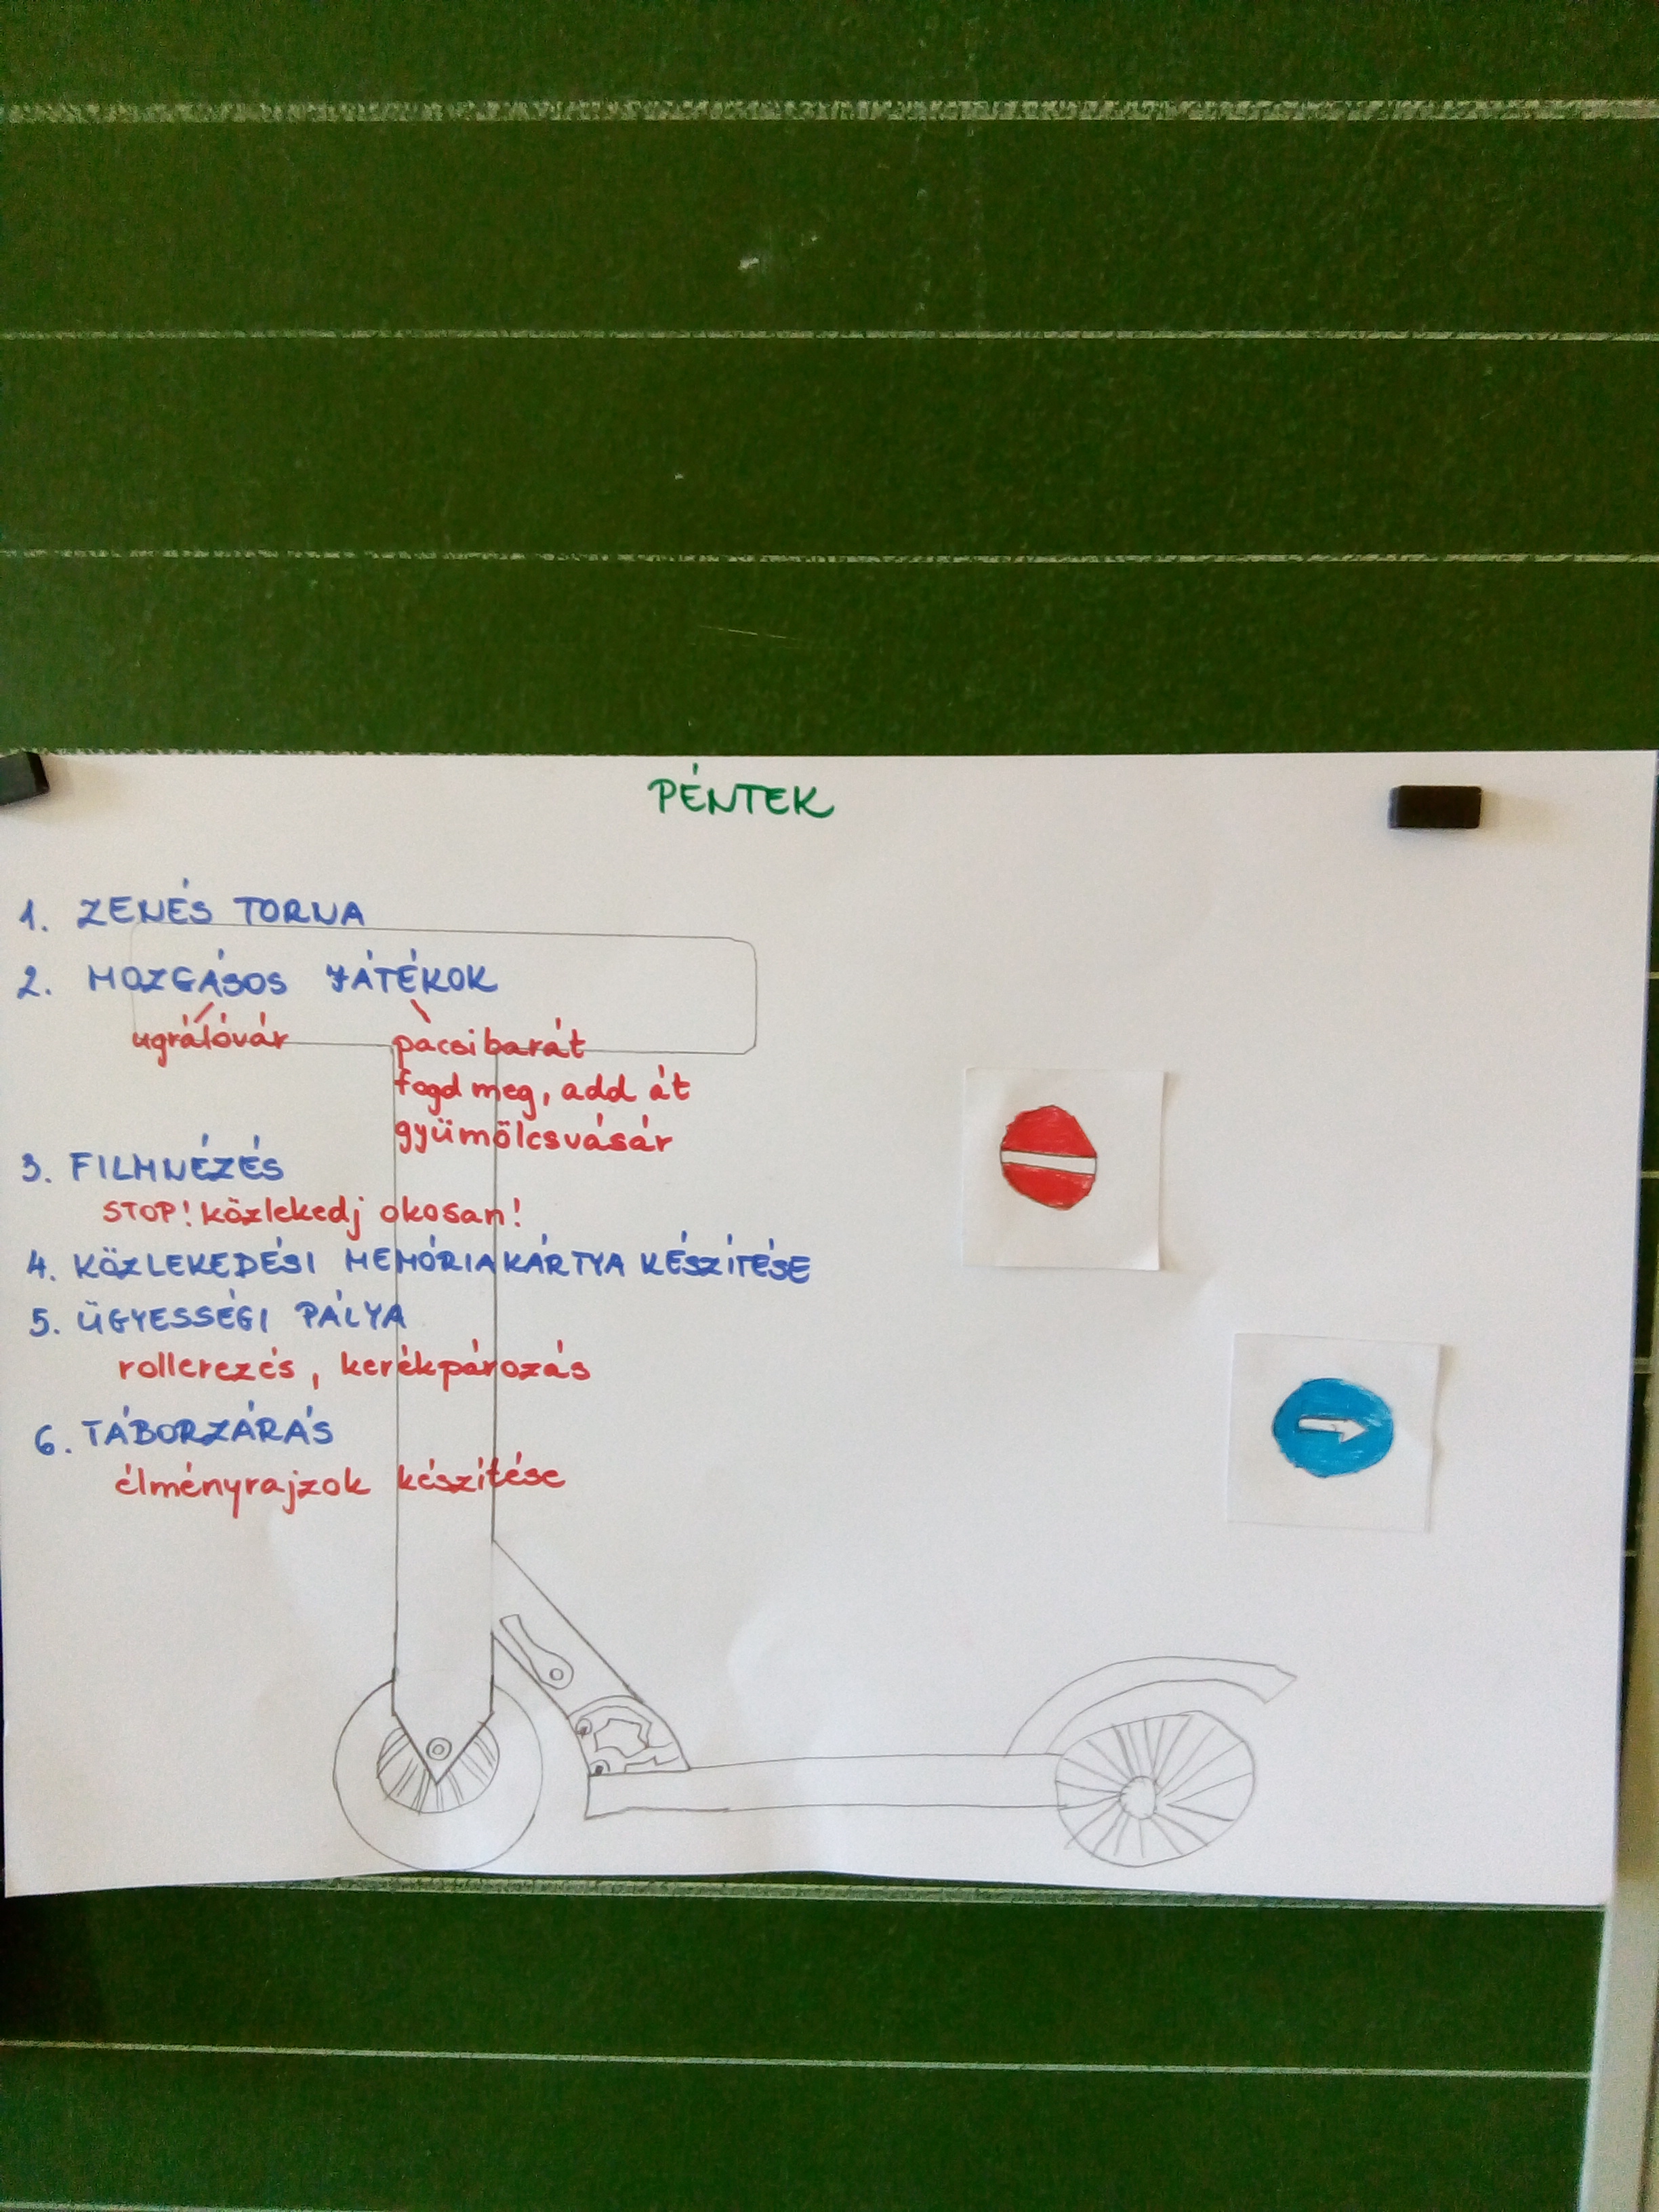 PÉNTEK
1. ZENÉS TORNA
2. MOZGÁSOS JÁTÉKOK
ugrálóvár pacsibarát
fogd meg, add át
gyümölcsvásár
3. FILMNÉZÉS
STOP! közlekedj okosan!
4. KÖZLEKEDÉSI MEMÓRIAKÁRTYA KÉSZÍTÉSE
5. ÜGYESSÉGI PÁLYA
rollerezés, kerékpározás
6. TÁBORZÁRÁS
élményrajzok készítése